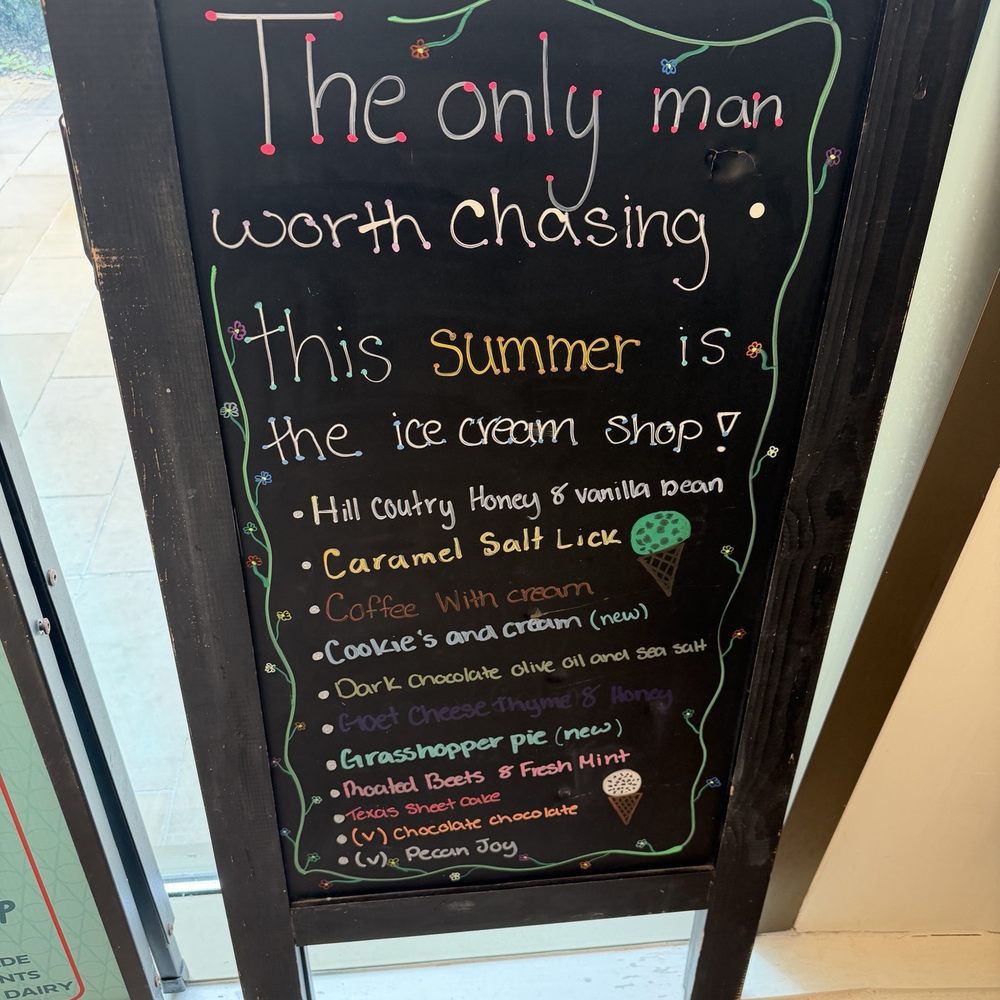 The only man
worth chasing
this summer is
the ice cream shop!
• Hill Coutry Honey & vanilla bean
• Caramel Salt Lick
• Coffee With cream
• Cookie's and cream (new)
• Dark chocolate olive oil and sea salt
• Goet Cheese Thyme & Honey
• Grasshopper pie (new)
• Roated Beets & Fresh Mint
• Texas Sheet cake
• (v) Chocolate chocolate
• (v) Pecan Joy
P
DE
NTS
DAIRY